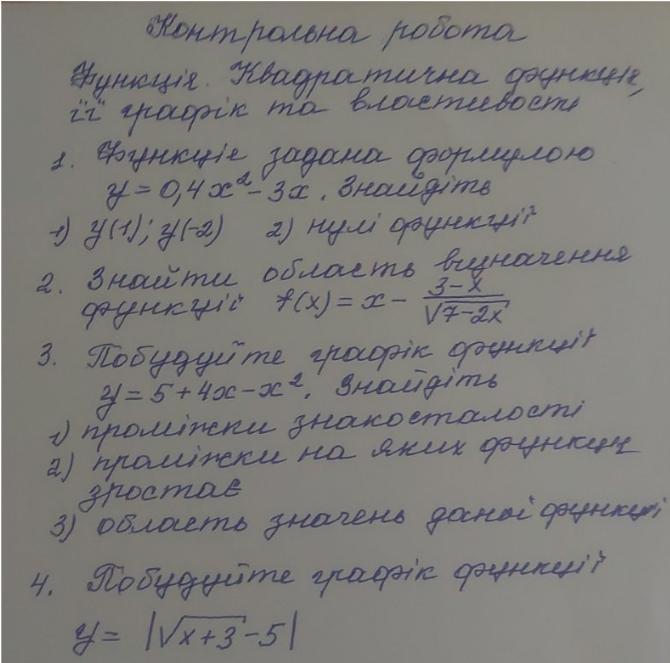 Контрольна робота
Функція. Квадратична функція,
її графік та властивості
1. Функція задана формулою
y = 0,4x² - 3x. Знайдіть
1) y(1); y(-2) 2) нулі функції
2. Знайти область визначення
функції f(x) = x - (3-x)/√(7-2x)
3. Побудуйте графік функції
y = 5 + 4x - x². Знайдіть
1) проміжки знакосталості
2) проміжки на яких функція
зростає
3) область значень даної функції
4. Побудуйте графік функції
y = |√(x+3) - 5|